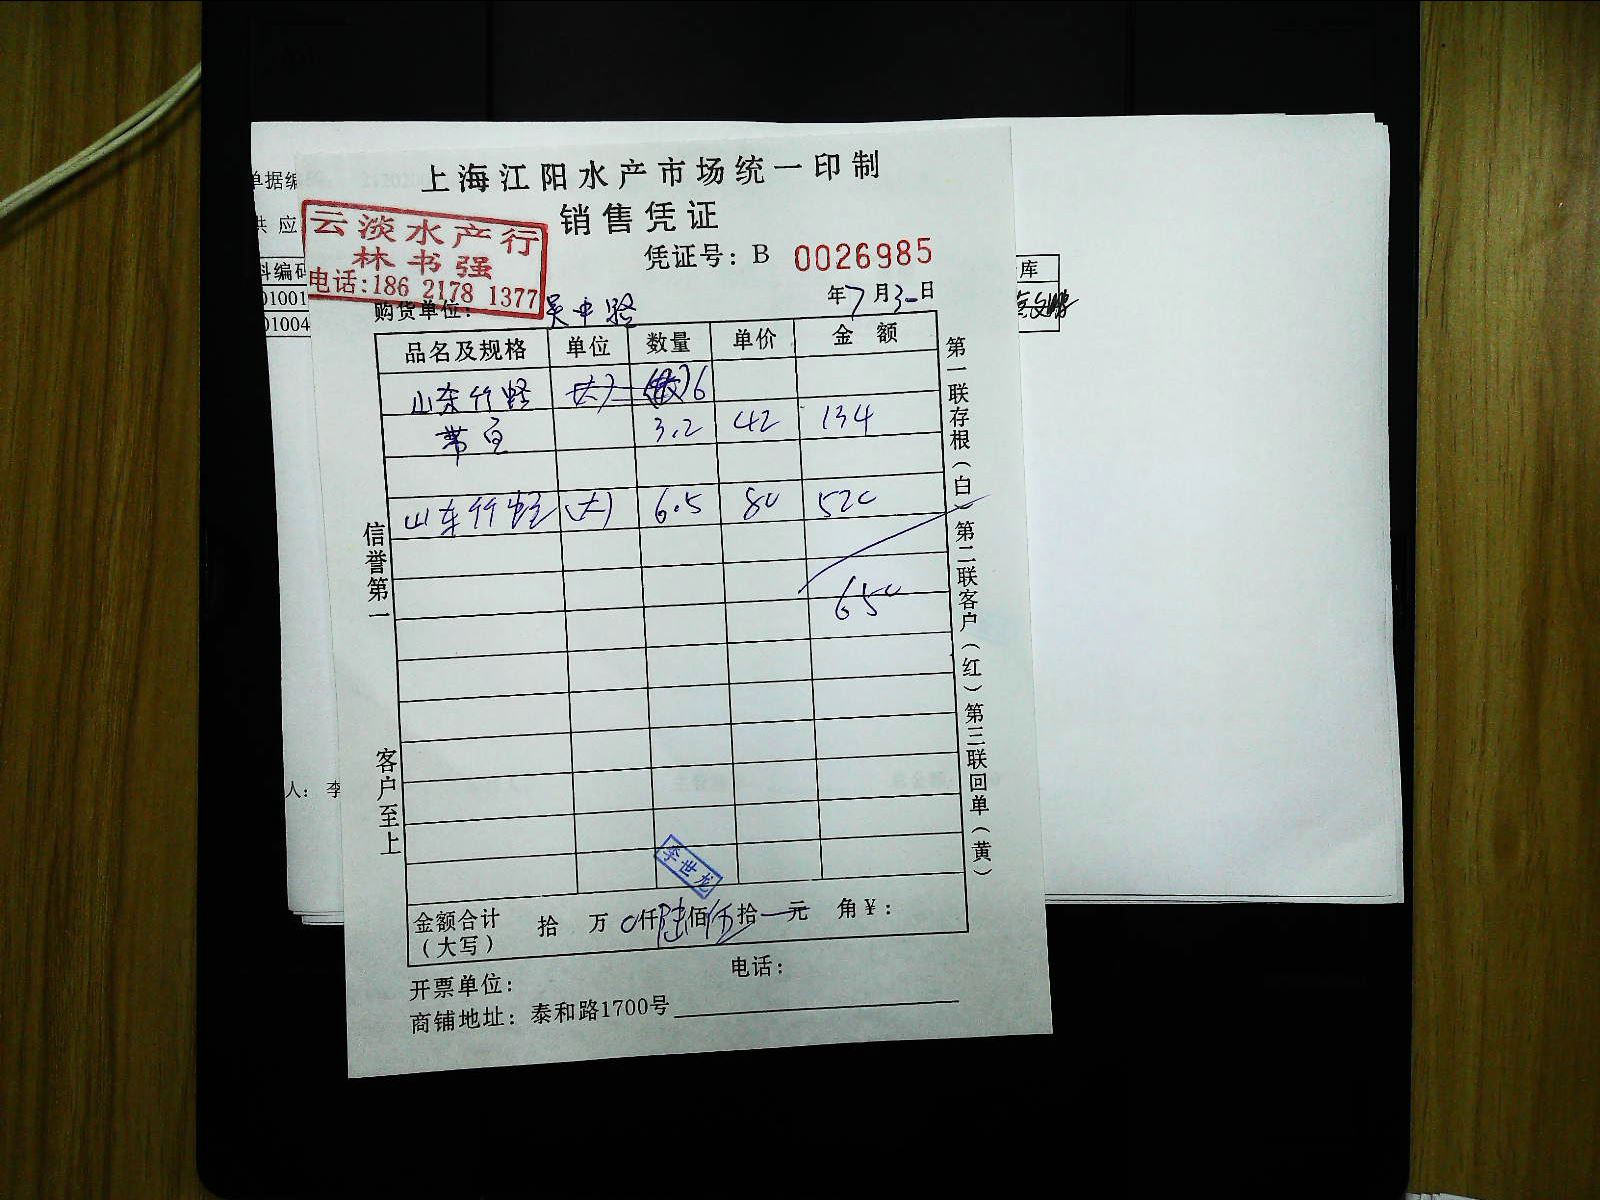 上海江阳水产市场统一印制
销售凭证
凭证号：B 0026985
云淡水产行
林书强
电话:186 2178 1377
单据编
供应
料编码
01001
01004
库
购货单位： 吴中路
年7月3日
品名及规格 单位 数量 单价 金额
山东竹蛏 大 6
3.2 42 134
山东竹蛏 (大) 6.5 80 520
650
信誉第一
客户至上
第一联存根（白）第二联客户（红）第三联回单（黄）
李世龙
金额合计（大写） 拾 万 0仟陆佰伍拾一元 角￥：
开票单位：
电话：
商铺地址：泰和路1700号
人：李